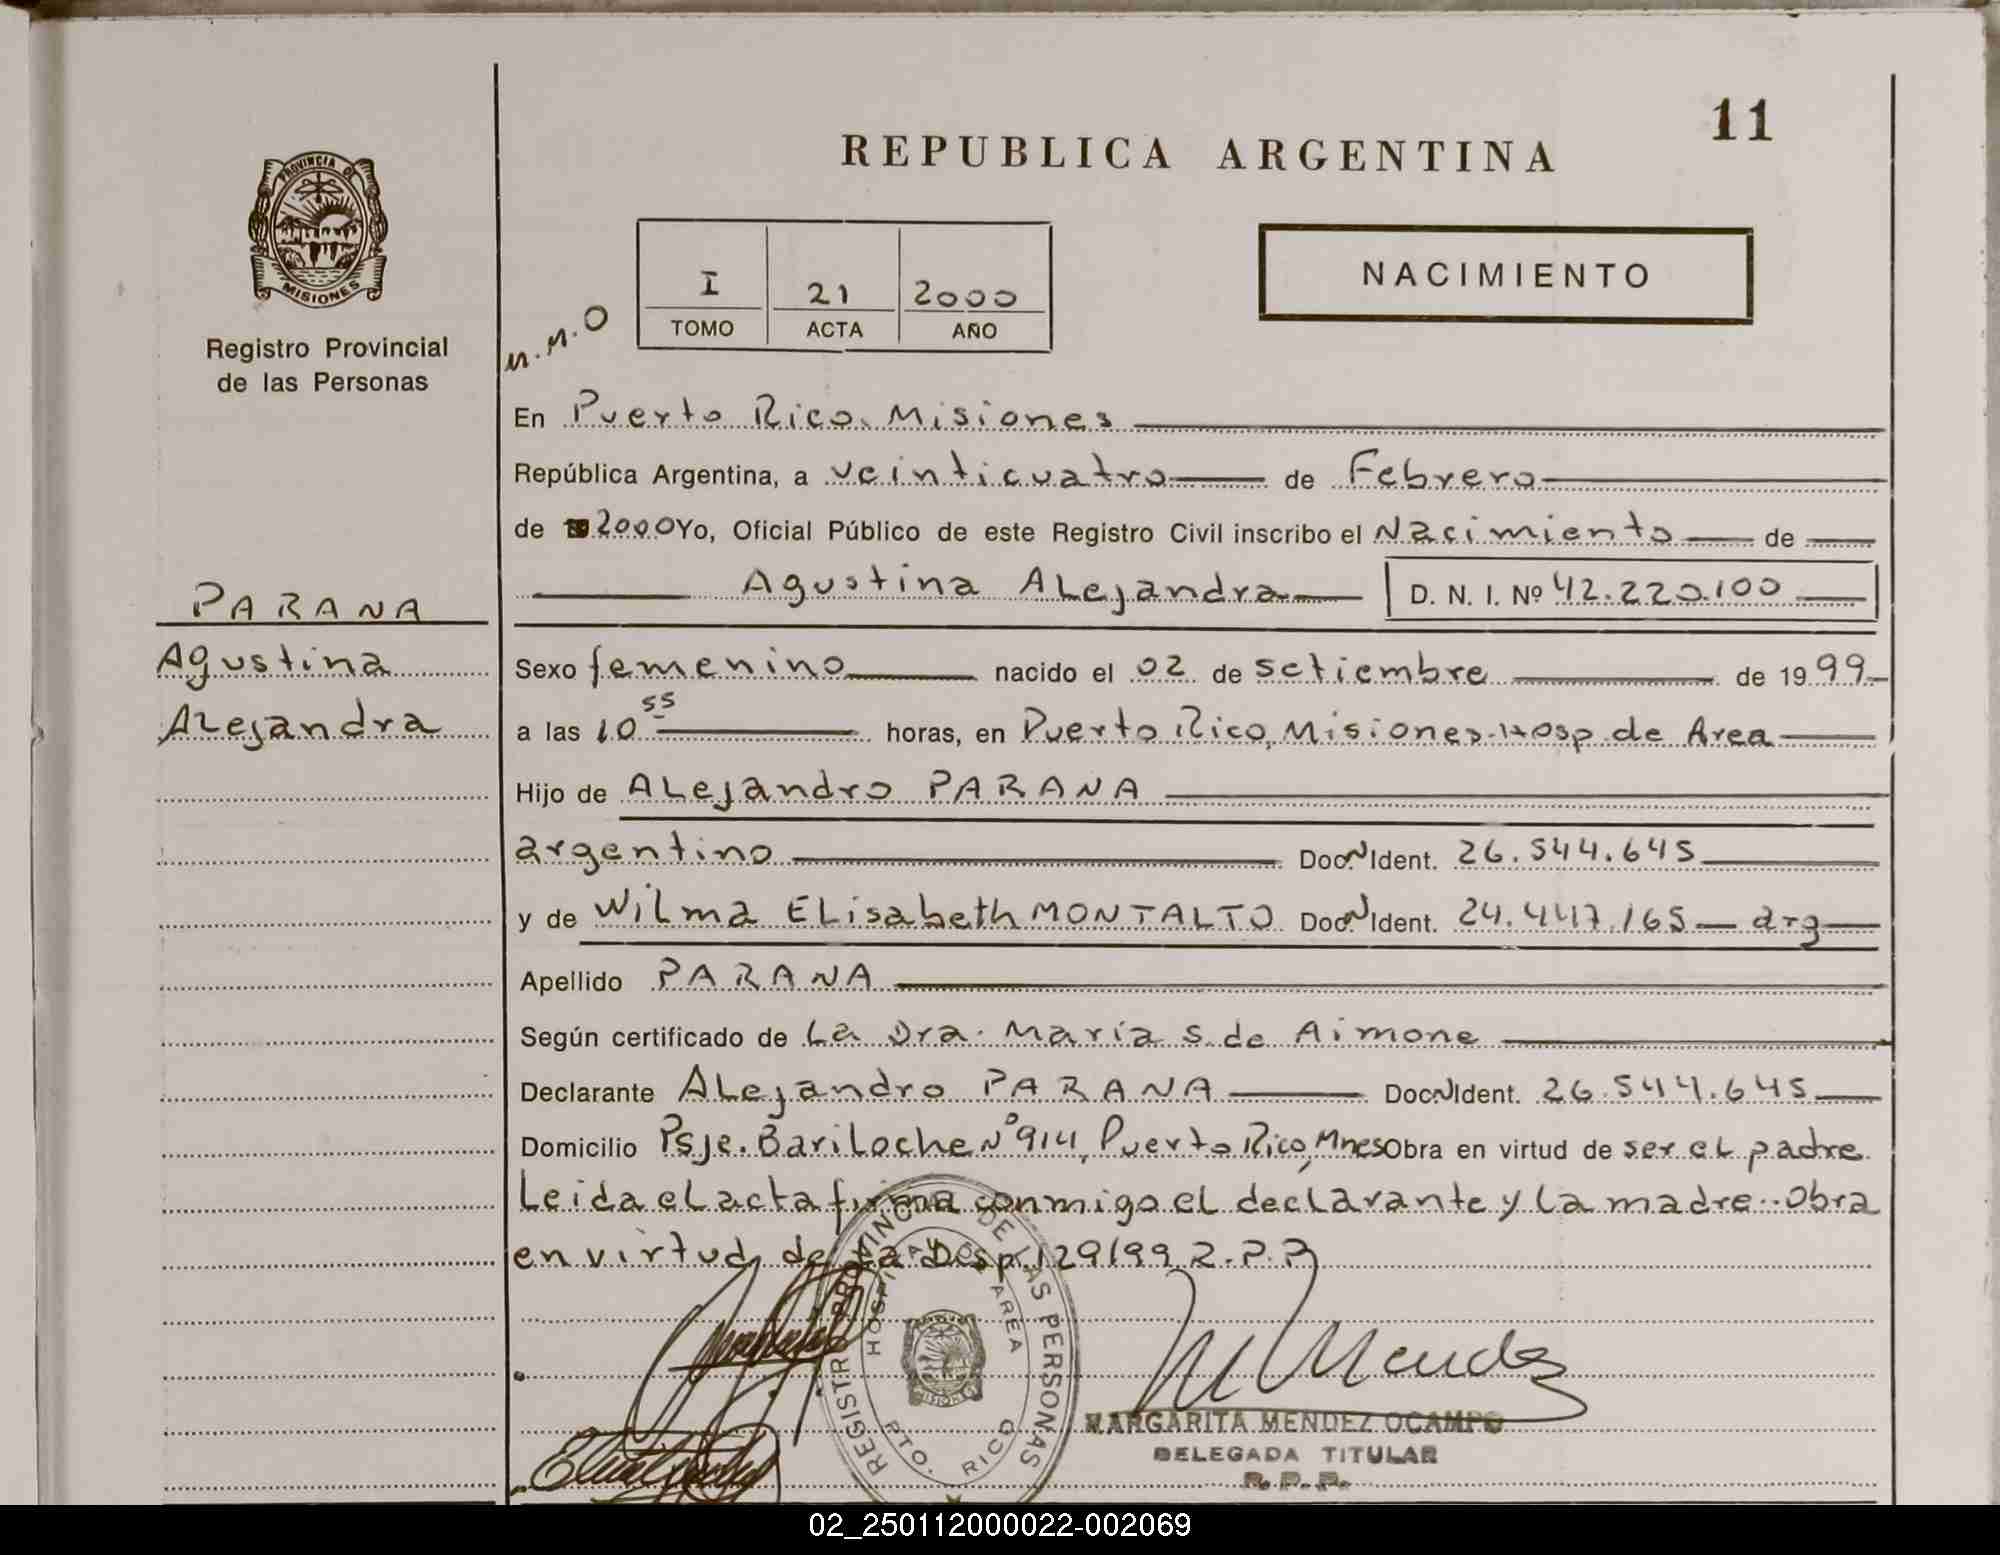 11
REPUBLICA ARGENTINA
PROVINCIA DE
MISIONES
Registro Provincial
de las Personas
NACIMIENTO
I 21 2000
TOMO ACTA AÑO
En Puerto Rico, Misiones
República Argentina, a veinticuatro de Febrero
de 2000 Yo, Oficial Público de este Registro Civil inscribo el Nacimiento de
Agustina ALejandra D. N. I. Nº 42.220.100
PARANA
Agustina
ALejandra
Sexo femenino nacido el 02 de setiembre de 1999
a las 10 55 horas, en Puerto Rico, Misiones.Hosp de Area
Hijo de ALejandro PARANA
argentino Doc. N Ident. 26.544.645
y de Wilma ELisabeth MONTALTO Doc. N Ident. 24.447.165 arg
Apellido PARANA
Según certificado de La Dra. María S. de Aimone
Declarante ALejandro PARANA Doc. N Ident. 26.544.645
Domicilio Psje. BariLoche Nº 914, Puerto Rico, Mnes Obra en virtud de ser el padre
Leida el acta firma conmigo el declarante y la madre.-Obra
en virtud de la Disp. 129/99 R.P.P
REGISTRO PROVINCIAL DE LAS PERSONAS
HOSPITAL DE AREA
PTO. RICO
M Mendez
MARGARITA MENDEZ OCAMPO
DELEGADA TITULAR
R. P. P.
02_250112000022-002069